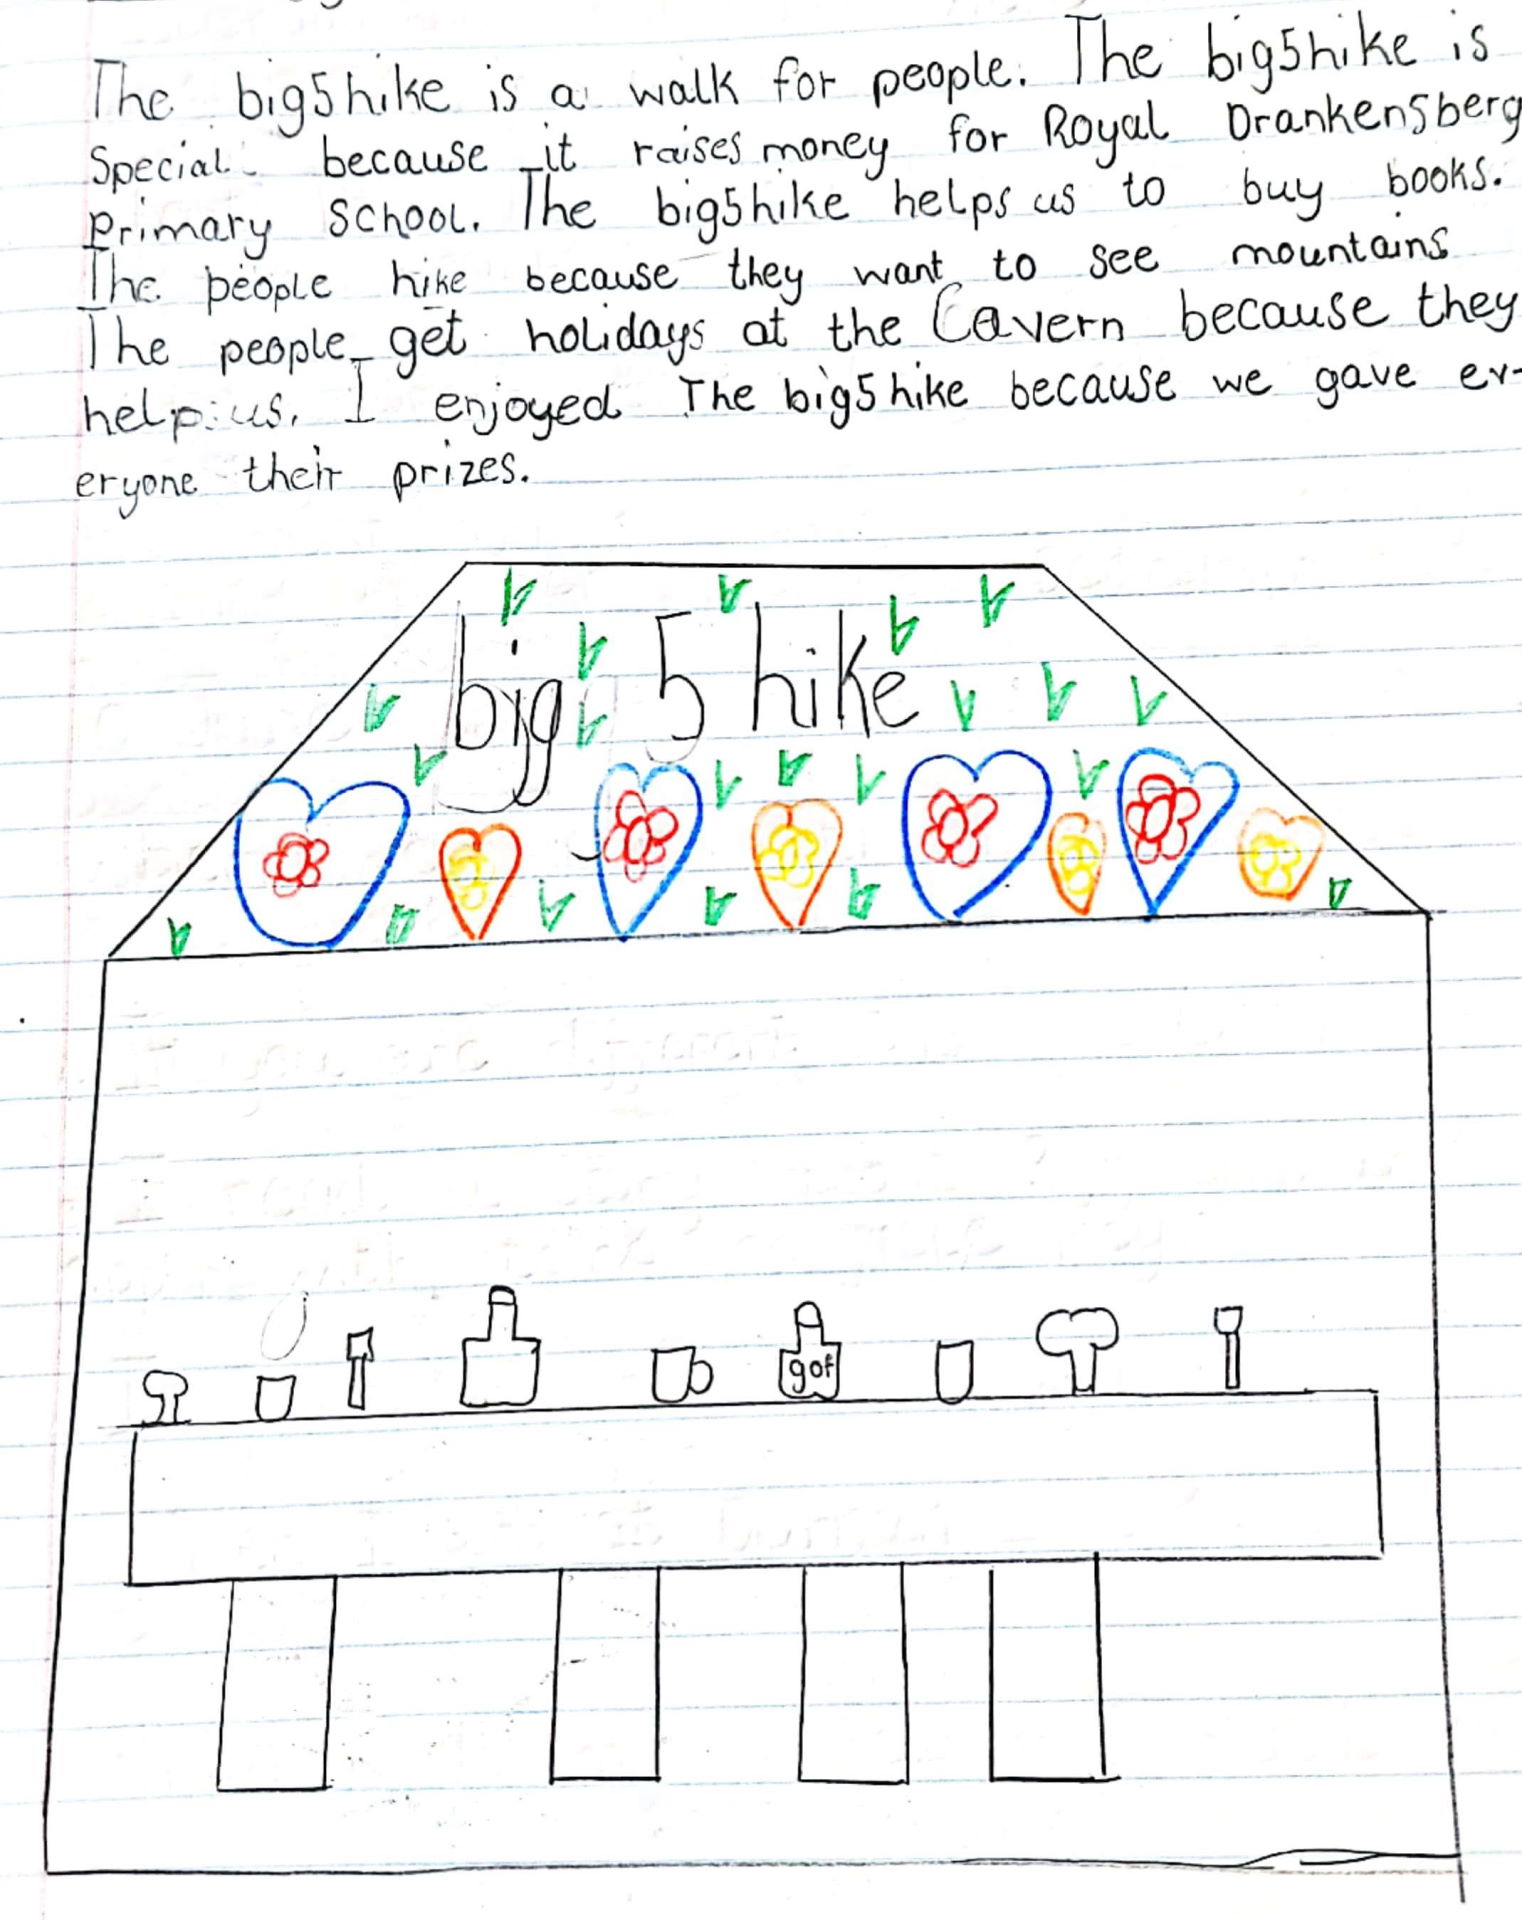 The big5hike is a walk for people. The big5hike is
Special because it raises money for Royal Drankensberg
Primary School. The big5hike helps us to buy books.
The people hike because they want to see mountains
The people get holidays at the Cavern because they
help us. I enjoyed The big5hike because we gave ev-
eryone their prizes.
big 5 hike
gof